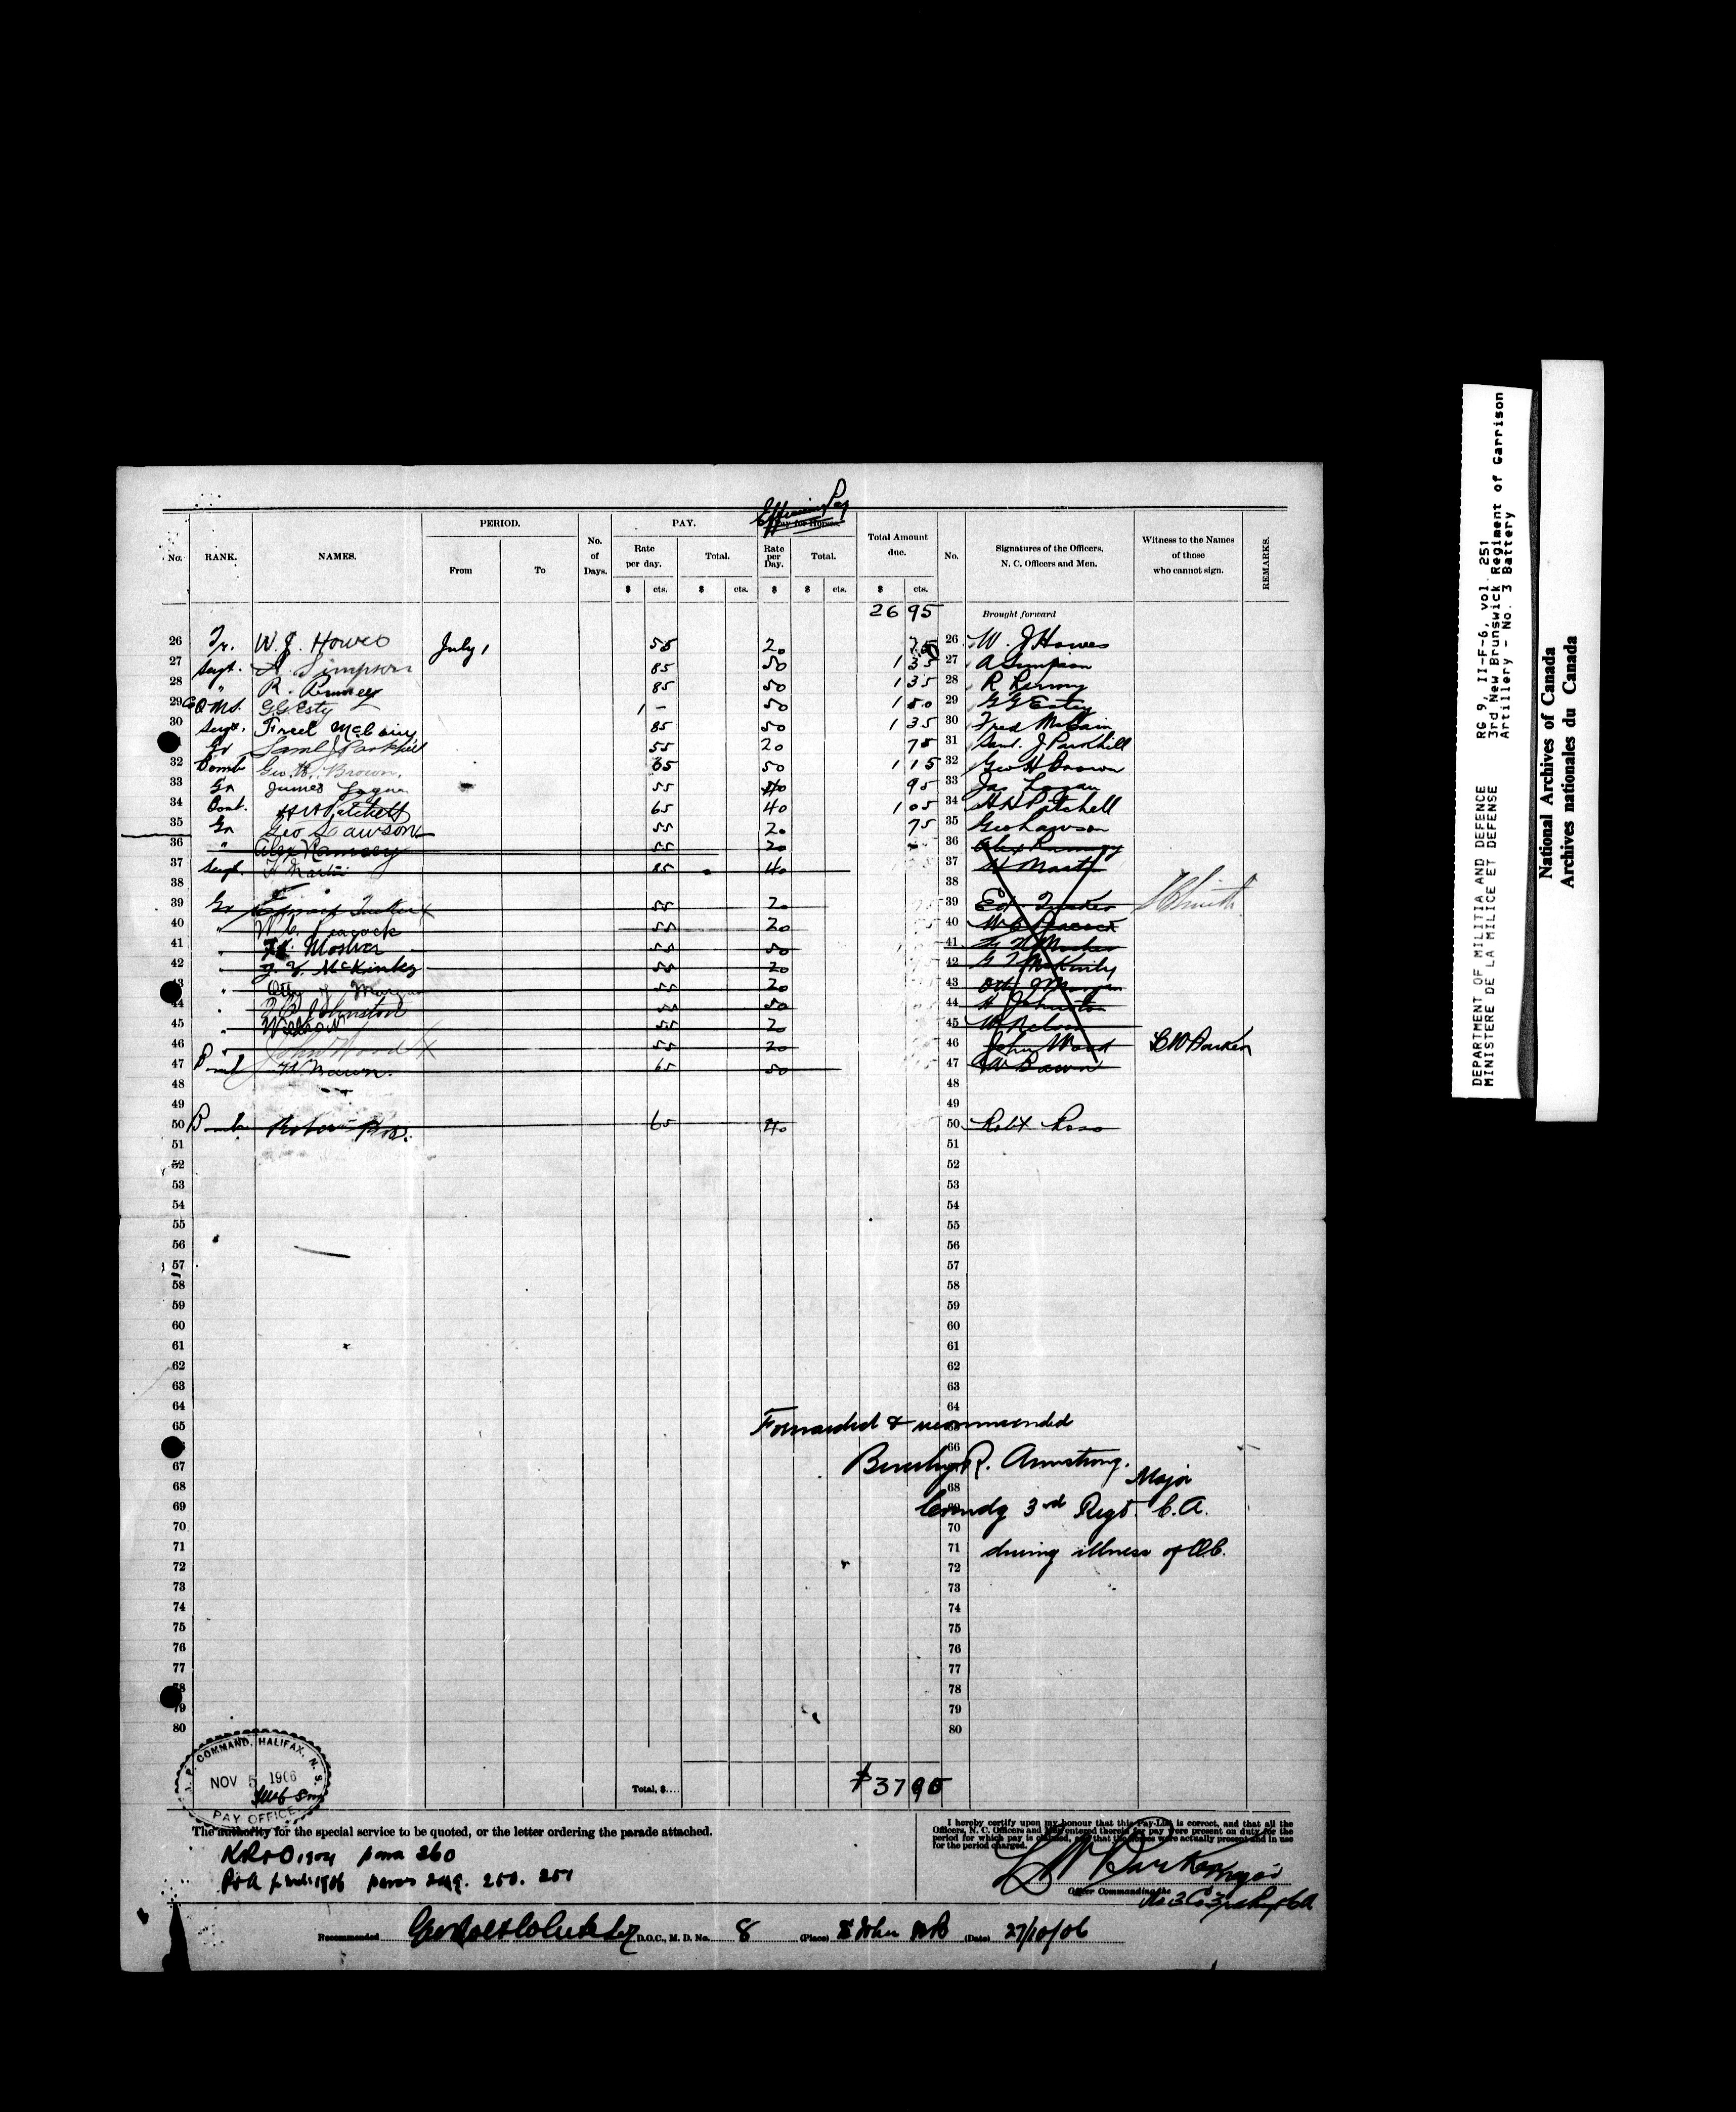 Efficiency Pay
PERIOD. PAY. Pay for Horses.
No. RANK. NAMES. From To No. of Days. Rate per day. Total. Rate per Day. Total. Total Amount due. No. Signatures of the Officers, N. C. Officers and Men. Witness to the Names of those who cannot sign. REMARKS.
$ cts. $ cts. $ $ cts. $ cts.
26 95 Brought forward
26 W. J. Howes July 1 55 20 75 26 W. J Howes
27 Sergt. A. Simpson 85 50 1 35 27 A Simpson
28 " R. 85 50 1 35 28 R
29 C Q M S. G G Esty 1 – 50 1 50 29 G G Estey
30 Sergt. Fred McCain 85 50 1 35 30 Fred McCain
Gr Saml J Parkhill 55 20 75 31 Saml. J Parkhill
32 Bomb Geo. H. Brown. 65 50 1 15 32 Geo H Brown
33 Gr James Logan 55 40 95 33 Jas Logan
34 H H Patchell 65 40 1 05 34 H H Patchell
35 Gr Geo Lawson 55 20 75 35 Geo Lawson
36 " Alex Ramsey 55 20 36 Alex Ramsey
37 Sergt. H Martin 85 40 37 H Martin
38 38
39 Gr Tucker X 55 20 39 Ed. Tucker Smith
40 " W. C. Peacock 55 20 40 W C Peacock
41 " Mosher 55 50 41 Mosher
42 " McKinley 55 20 42 G McKinley
43 " Otty J Morgan 55 20 43 Otty J Morgan
44 " Johnston 55 50 44 H Johnston
45 " W Nelson 55 20 45 W Nelson
46 " John Wood X 55 20 46 John Wood B W Barker
47 Brown. 65 50 47 W Brown
48 48
49 49
50 Robert Ross. 65 40 50 Robt Ross
51 51
52 52
53 53
54 54
55 55
56 56
57 57
58 58
59 59
60 60
61 61
62 62
63 63
64 64
65 Forwarded & recommended
66
67 Beverley R. Armstrong. Major
68 68
69 Comdg 3rd Regt. C.A.
70 70
71 71 during illness of O.C.
72 72
73 73
74 74
75 75
76 76
77 77
78 78
79 79
80 80
COMMAND, HALIFAX, N. S.
NOV 5 1906
PAY OFFICE
Total, $.... $37 95
The authority for the special service to be quoted, or the letter ordering the parade attached.
K R & O 1904 para 260
P & A 1906 paras 249. 250. 251
I hereby certify upon my honour that this Pay-List is correct, and that all the
Officers, N. C. Officers and Men entered therein for pay were present on duty for the
period for which pay is claimed, and that the horses were actually present and in use
for the period charged.
B W Barker Major
Officer Commanding the No 3 Co 3rd Regt C A
Recommended D.O.C., M. D. No. 8 (Place) St John N B (Date) 27/10/06
DEPARTMENT OF MILITIA AND DEFENCE RG 9, II-F-6, vol. 251
MINISTERE DE LA MILICE ET DEFENSE 3rd New Brunswick Regiment of Garrison
Artillery - No. 3 Battery
National Archives of Canada
Archives nationales du Canada